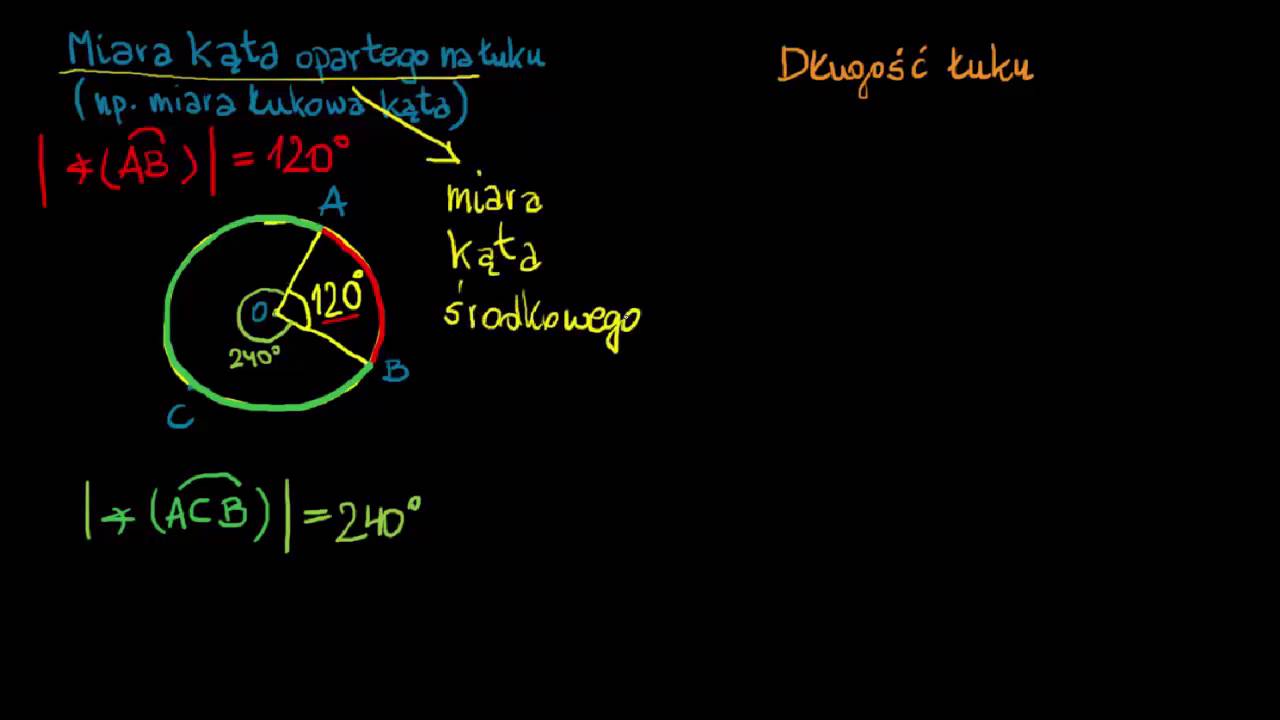 Miara kąta opartego na łuku
(np. miara łukowa kąta)
|∢(AB)| = 120°
miara
kąta
środkowego
A
120°
O
240°
B
C
|∢(ACB)| = 240°
Długość łuku